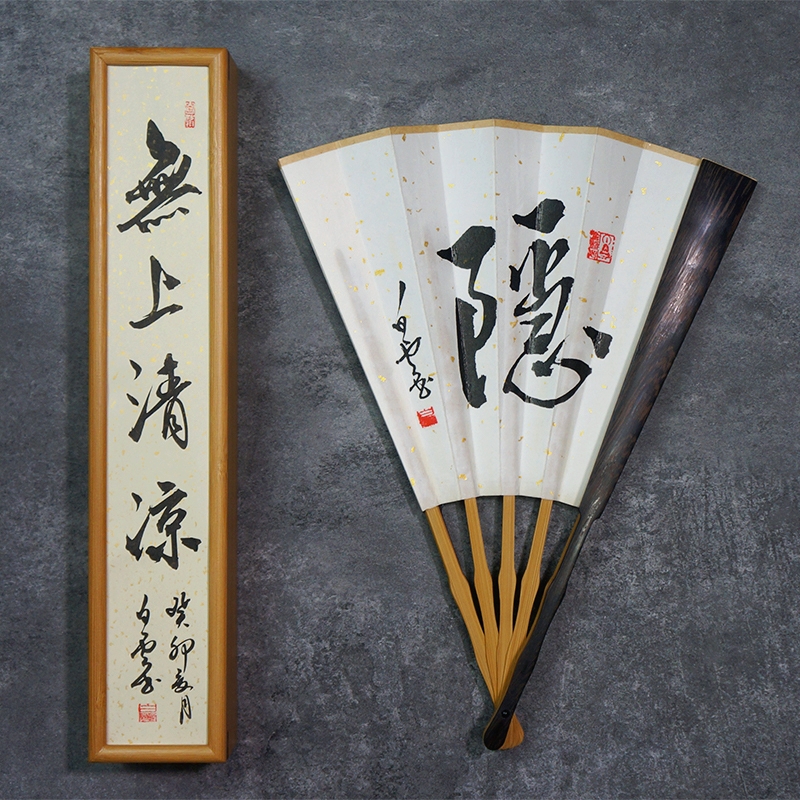 無上清凉
癸卯夏月
白雲
隱
白雲